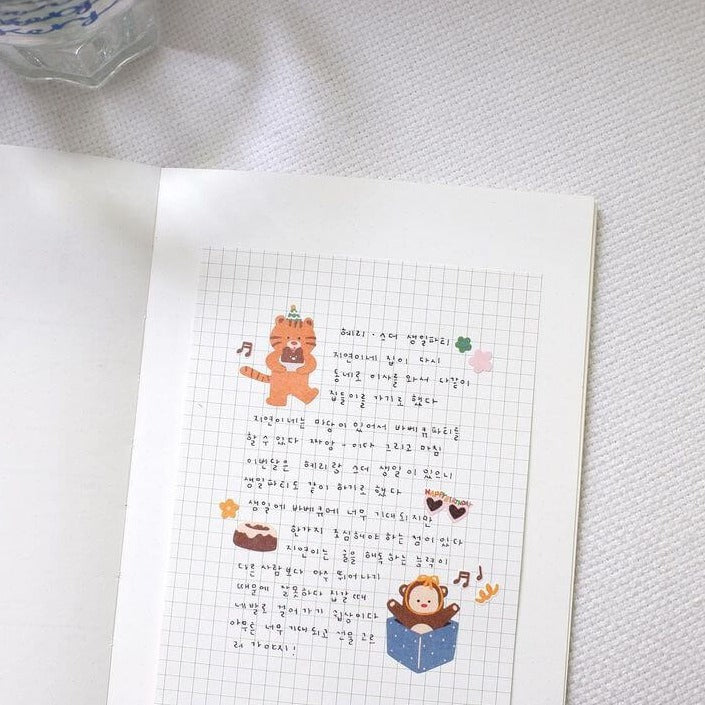 혜리·스더 생일파티
지연이네 집이 다시
동네로 이사를 와서 다같이
집들이를 가기로 했다
지연이네는 마당이 있어서 바베큐파티를
할 수 있다 짜앙-이다 그리고 마침
이번달은 혜리랑 스더 생일이 있으니
생일파티도 같이 하기로 했다
HAPPY BIRTHDAY
생일에 바베큐에 너무 기대되지만
한가지 조심해야 하는 점이 있다
지연이는 술을 해독하는 능력이
다른사람보다 아주 뛰어나기
때문에 잘못하다 집갈 때
네발로 걸어가기 쉽상이다
아무튼 너무 기대되고 선물 고르
러 가야지!